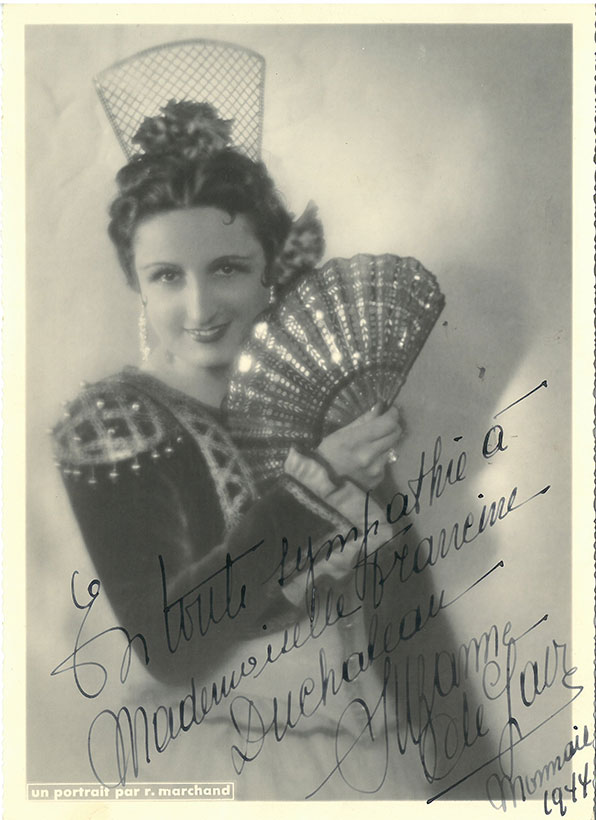 En toute sympathie à
Mademoiselle Francine
Duchateau
Suzanne
de Gavre
Monnaie
1944
un portrait par r. marchand